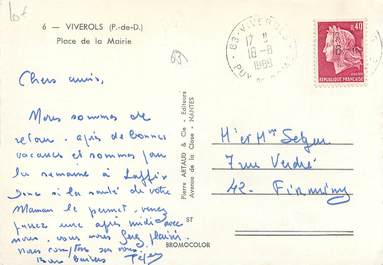 10f
6 — VIVEROLS (P.-de-D.)
Place de la Mairie
63
63 - VIVEROLS
17 H
18-8
1969
PUY
0,40
REPUBLIQUE FRANÇAISE
Chers amis,
Nous sommes de
retour, après de bonnes
vacances et sommes pour
la semaine à
donc si la santé de votre
Maman le permet, venez
passer une après midi avec
nous, vous nous ferez plaisir.
nous comptons sur vous.
Bons baisers
Pierre ARTAUD & Cie - Editeurs
Avenue de la Close - NANTES
ST
BROMOCOLOR
Mr et Mme
7 rue Verdié
42. Firminy